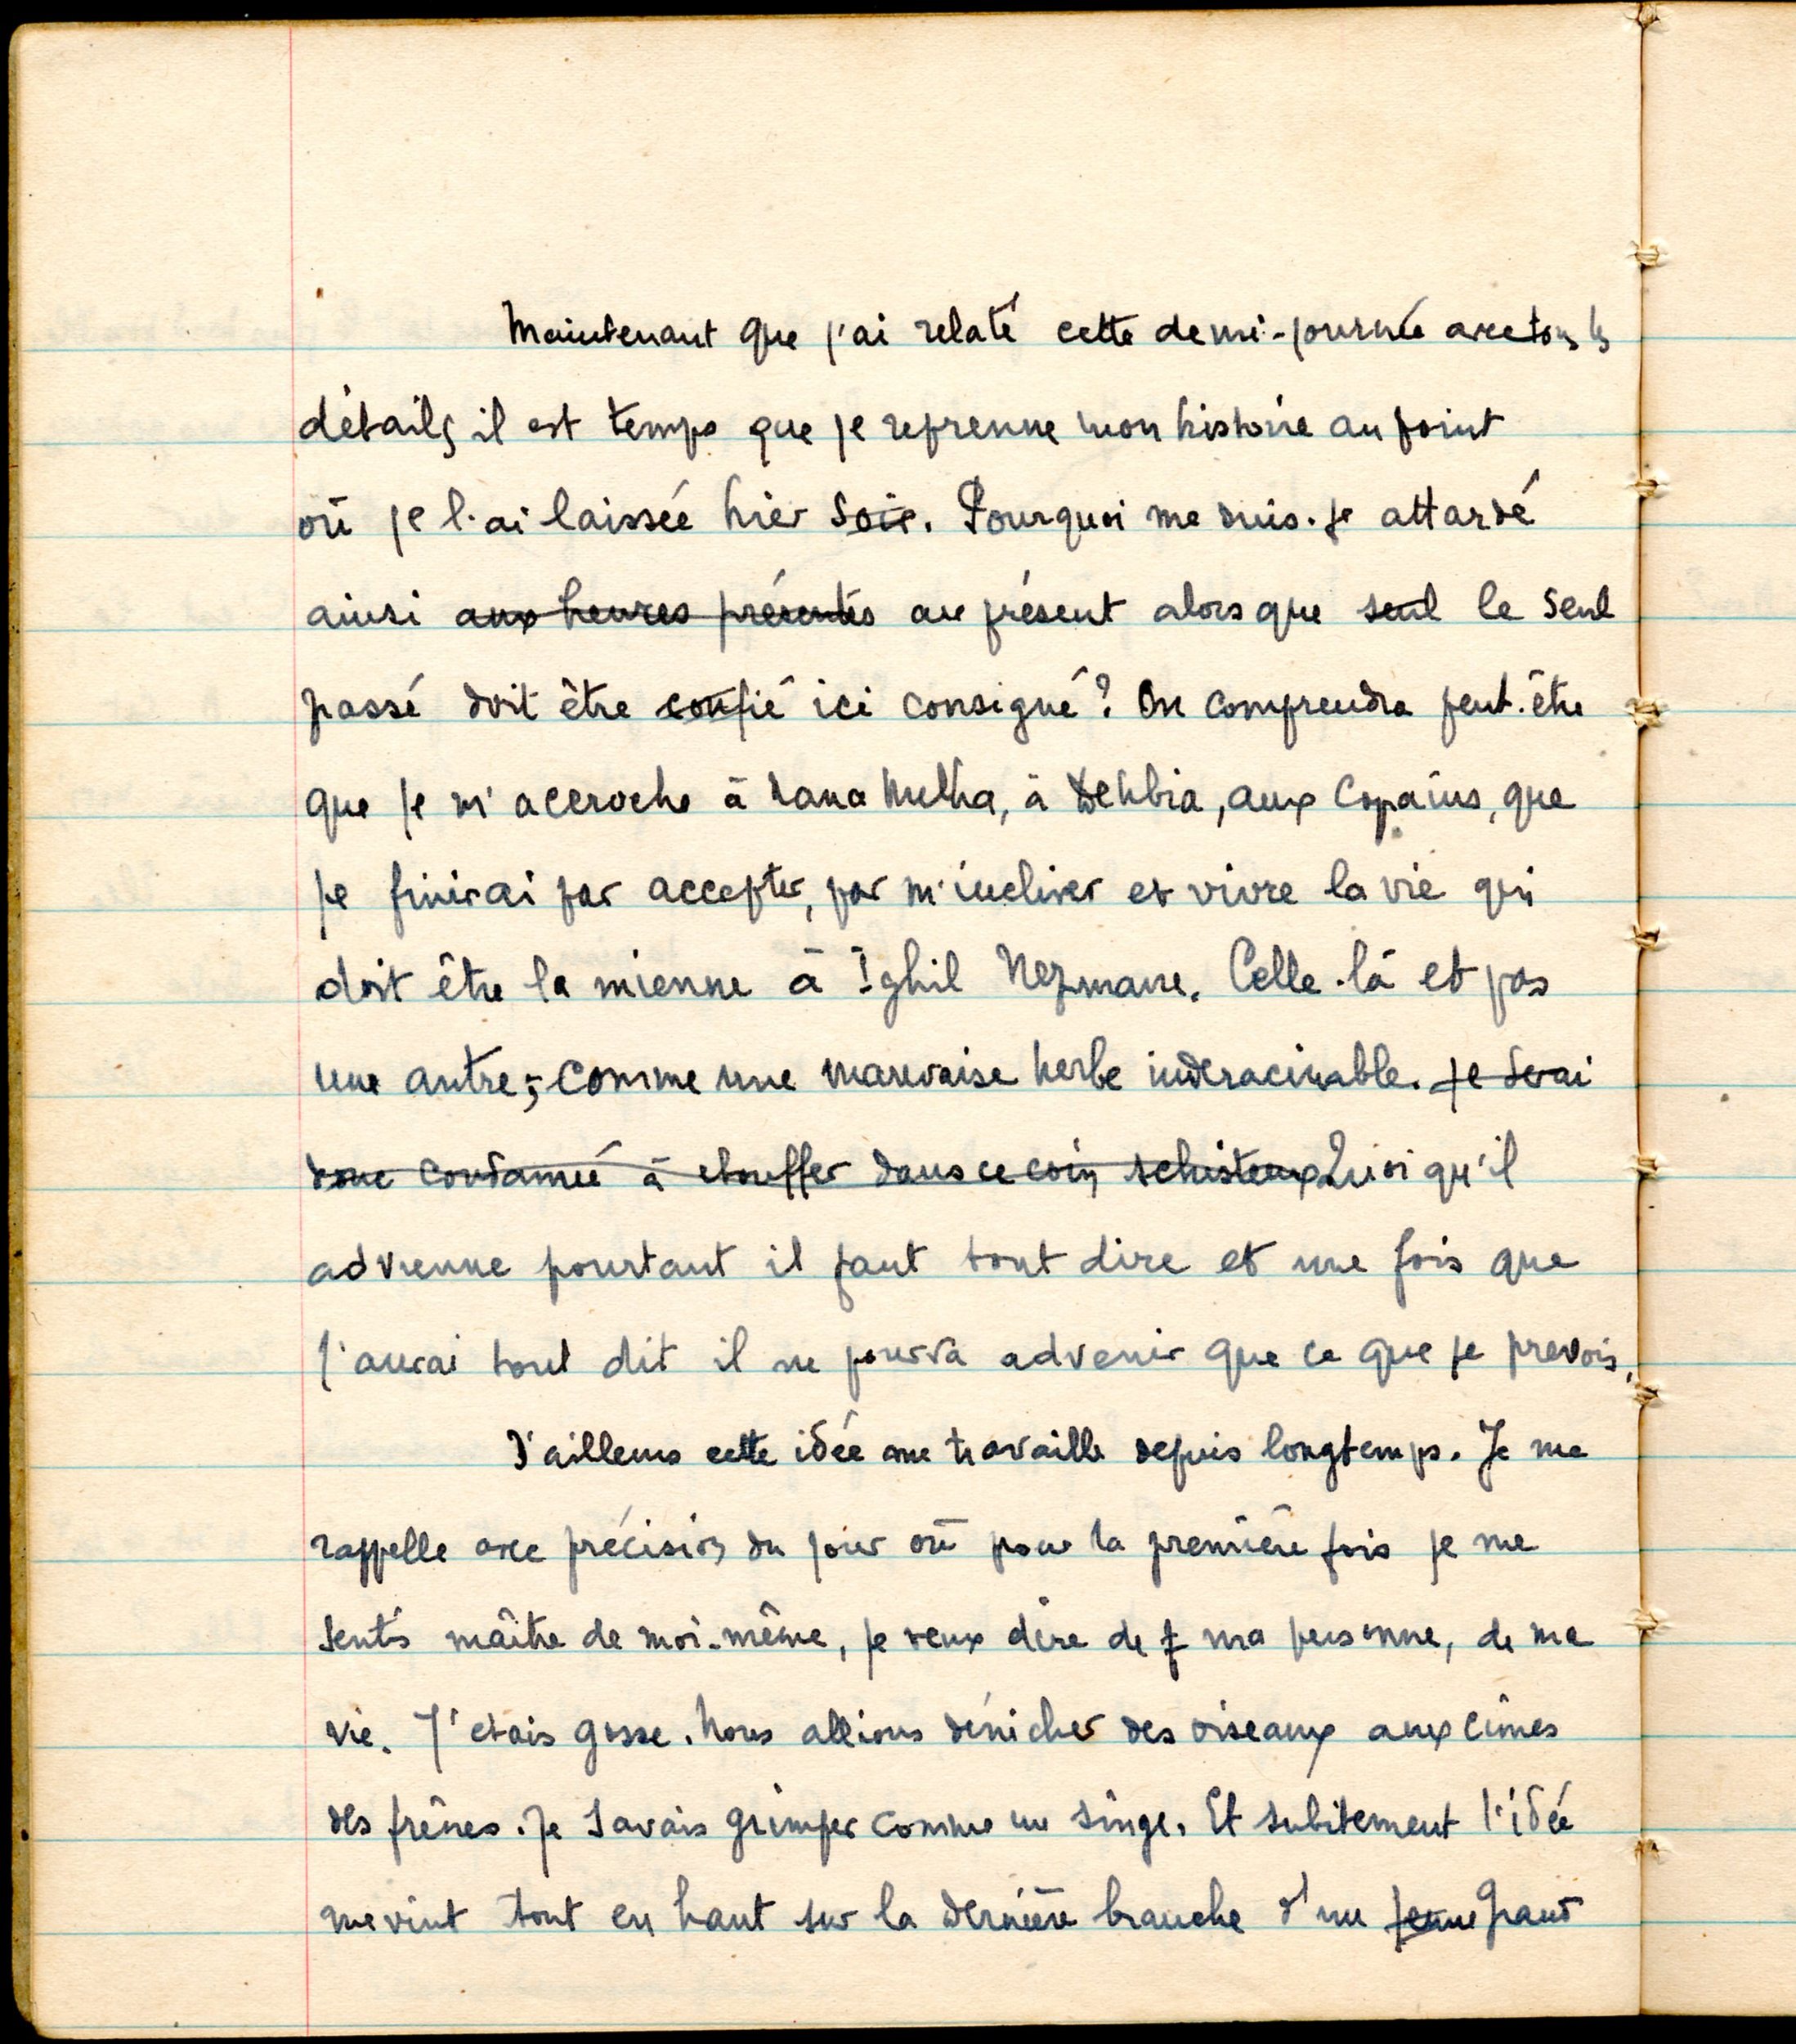 Maintenant que j'ai relaté cette demi-journée avec tous les
détails il est temps que je reprenne mon histoire au point
où je l'ai laissée hier soir. Pourquoi me suis-je attardé
ainsi aux heures présentes au présent alors que seul le seul
passé doit être confié ici consigné ? On comprendra peut-être
que je m'accroche à Nana Melha, à Dehbia, aux copains, que
je finirai par accepter, par m'incliner et vivre la vie qui
doit être la mienne à Ighil Nezmane. Celle-là et pas
une autre, comme une mauvaise herbe inderacinable. Je serai
donc condamné à etouffer dans ce coin schisteux Quoi qu'il
advienne pourtant il faut tout dire et une fois que
j'aurai tout dit il ne pourra advenir que ce que je prevois.
D'ailleurs cette idée me travaille depuis longtemps. Je me
rappelle avec précision du jour où pour la première fois je me
sentis maître de moi-même, je veux dire de ma personne, de ma
vie. J'etais gosse. Nous allions dénicher des oiseaux aux cîmes
des frênes. Je savais grimper comme un singe. Et subitement l'idée
me vint tout en haut sur la dernière branche d'un jeune grand